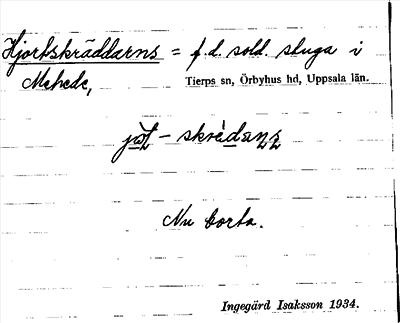 Hjortskräddarns = f.d. sold. stuga i
Mehede,
Tierps sn, Örbyhus hd, Uppsala län.
Nu borta.
Ingegärd Isaksson 1934.